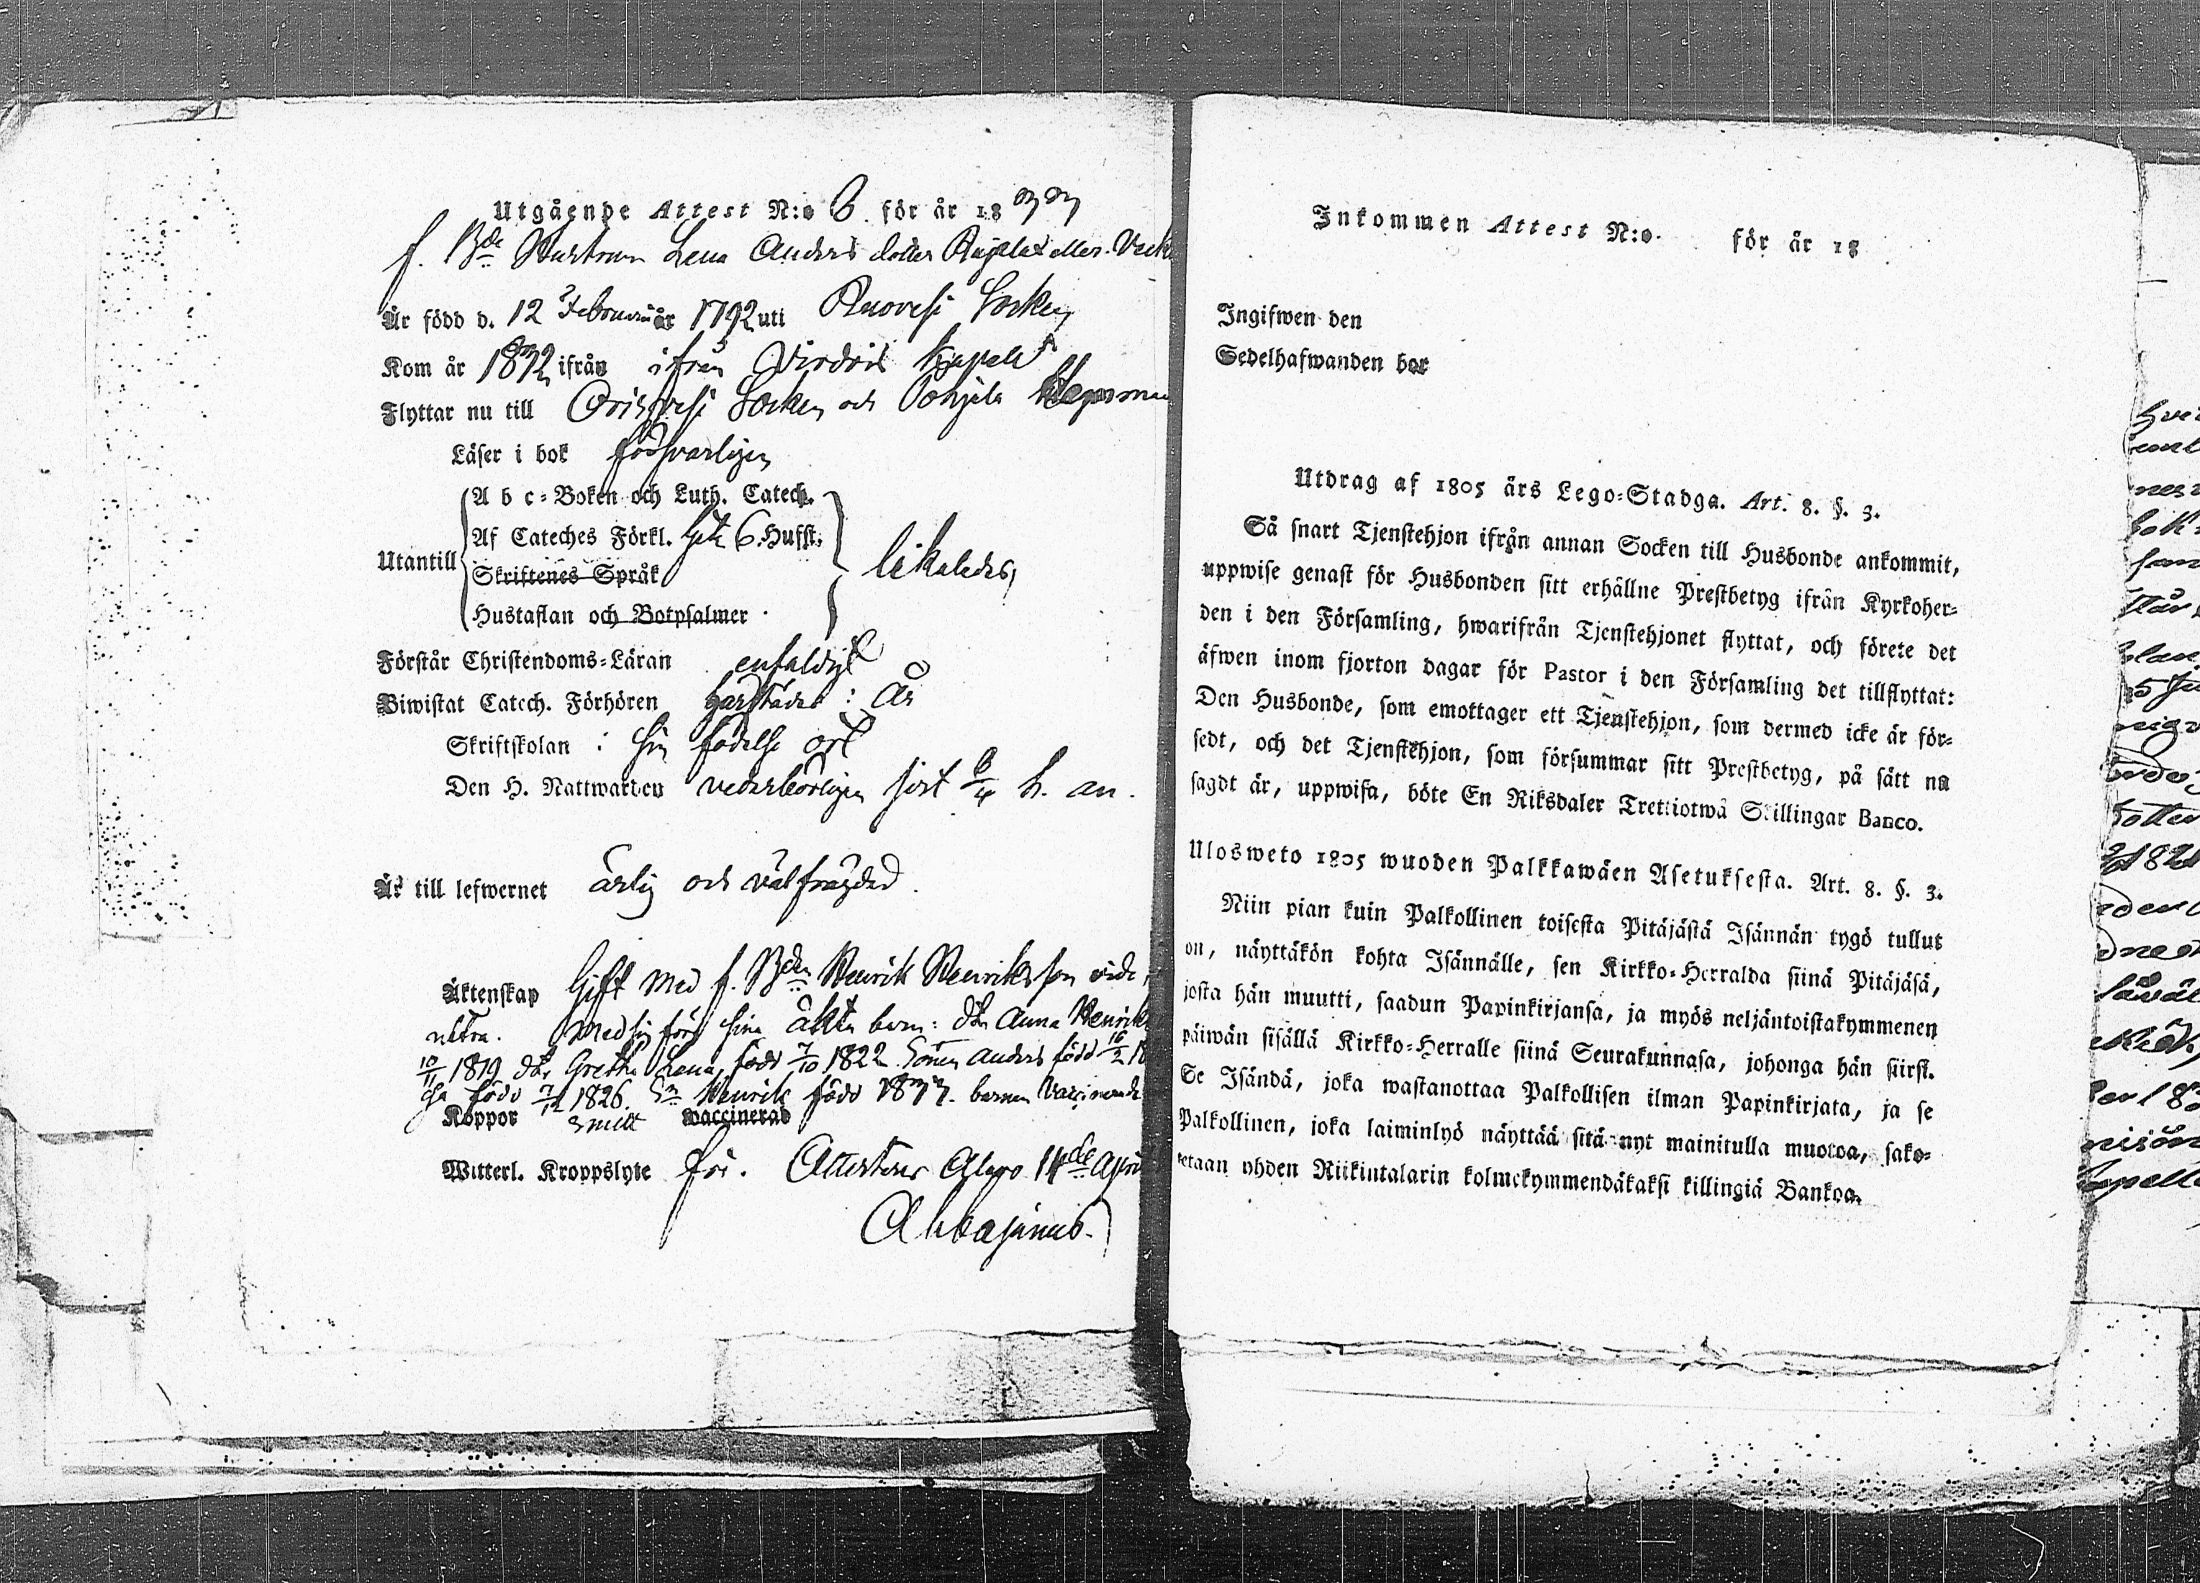 Utgående Attest N:o 6 för år 1833
f. Bde Hustrun Lena Anders dotter
Är född d. 12 Februarii år 1792 uti Ruovesi Socken
Kom år 1832 ifrån ifrån Virdois Kapell
Flyttar nu till Orisvesi Socken och Pohjola
Läser i bok försvarligen
Utantill
A b c-Boken och Luth. Catech.
Af Cateches Förkl. 6 Hufst.
Skriftenes Språk
Hustaflan och Botpsalmer
likaledes
Förstår Christendoms-Läran enfaldigt
Biwistat Catech. Förhören härstädes i År
Skriftskolan i sin födelse ort
Den H. Nattwarden vederbörligen sist h. an.
Är till lefwernet ärlig och välfrägdad.
Äktenskap Gift med f. Bden Henrik Henriksson vide
Med sig förer sina äkta barn: dtr Anna
10/11 1819 dtr Gretha Lena, född 7/10 1822 Sonen Anders född 16/2
född 7/12 1826. Sn Henrik född 1833. barnen
Koppor vaccinerad
Witterl. Kroppslyte fri. Attesterar Alavo 14de April
Inkommen Attest N:o för år 18
Ingifwen den
Sedelhafwanden bor
Utdrag af 1805 års Lego-Stadga. Art. 8. §. 3.
Så snart Tjenstehjon ifrån annan Socken till Husbonde ankommit,
uppwise genast för Husbonden sitt erhållne Prestbetyg ifrån Kyrkoher-
den i den Församling, hwarifrån Tjenstehjonet flyttat, och förete det
äfwen inom fjorton dagar för Pastor i den Församling det tillflyttat:
Den Husbonde, som emottager ett Tjenstehjon, som dermed icke är för-
sedt, och det Tjenstehjon, som försummar sitt Prestbetyg, på sätt nu
sagdt är, uppwisa, böte En Riksdaler Trettiotwå Skillingar Banco.
Ulosweto 1805 wuoden Palkkawäen Asetuksesta. Art. 8. §. 3.
Niin pian kuin Palkollinen toisesta Pitäjästä Isännän tygö tullut
on, näyttäkön kohta Isännälle, sen Kirkko-Herralda siinä Pitäjäsä,
josta hän muutti, saadun Papinkirjansa, ja myös neljäntoistakymmenen
päiwän sisällä Kirkko-Herralle siinä Seurakunnasa, johonga hän siirsi.
Se Isändä, joka wastanottaa Palkollisen ilman Papinkirjata, ja se
Palkollinen, joka laiminlyö näyttää sitä nyt mainitulla muotoa, sako-
tetaan yhden Riikintalarin kolmekymmendäkaksi killingiä Bankoa.